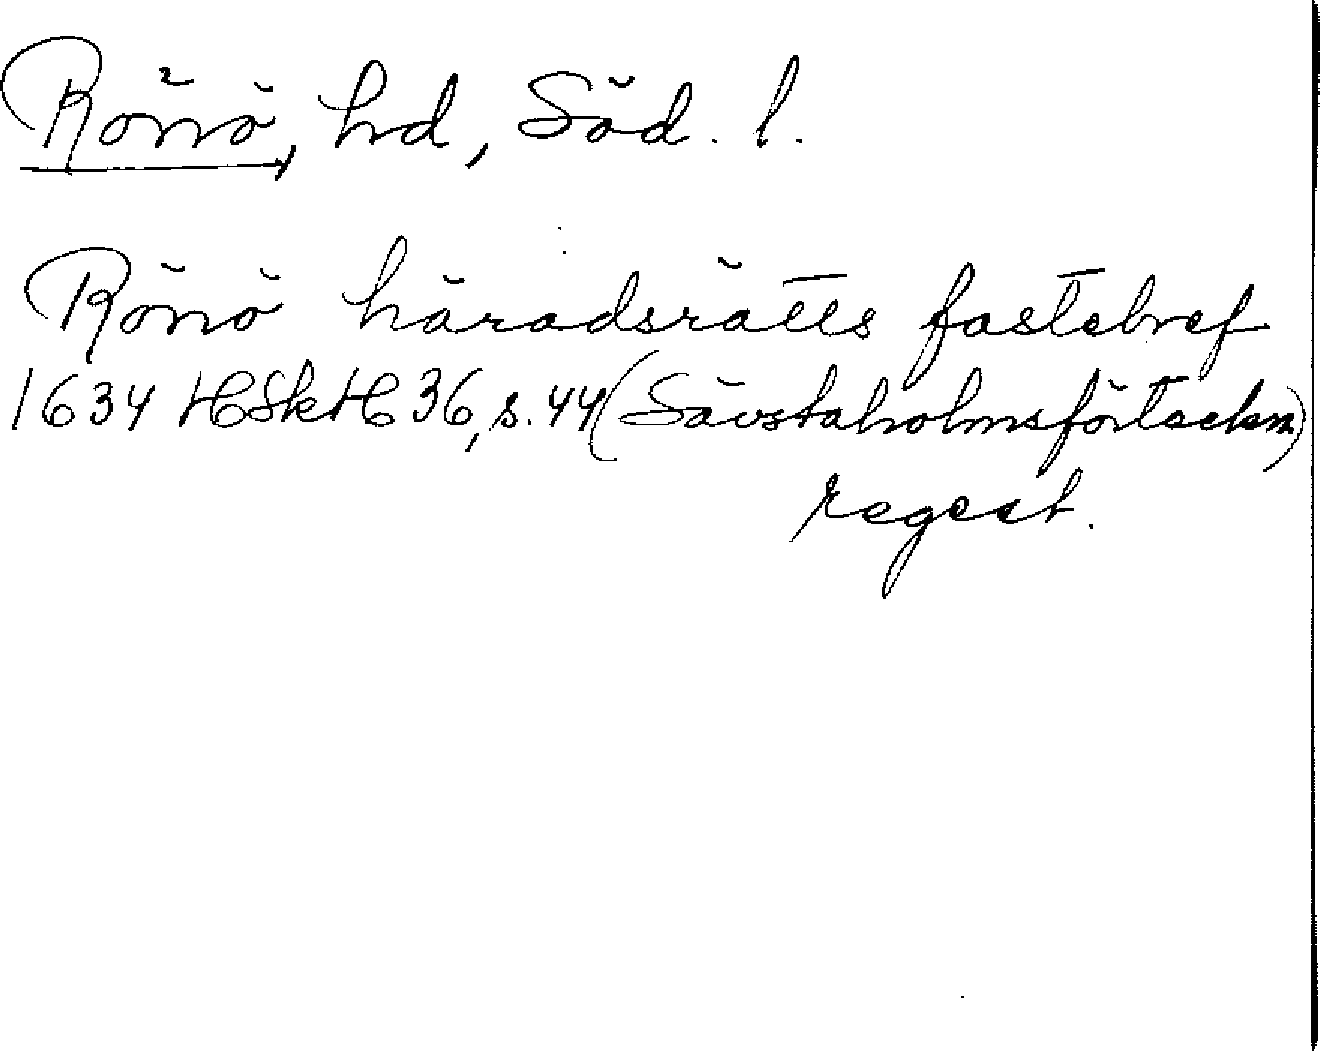 Rönö, hd, Söd. l.
Rönö häradsrätts fastebref
1634 HSkH 36, s. 44 (Sävstaholmsförteckn)
regest.